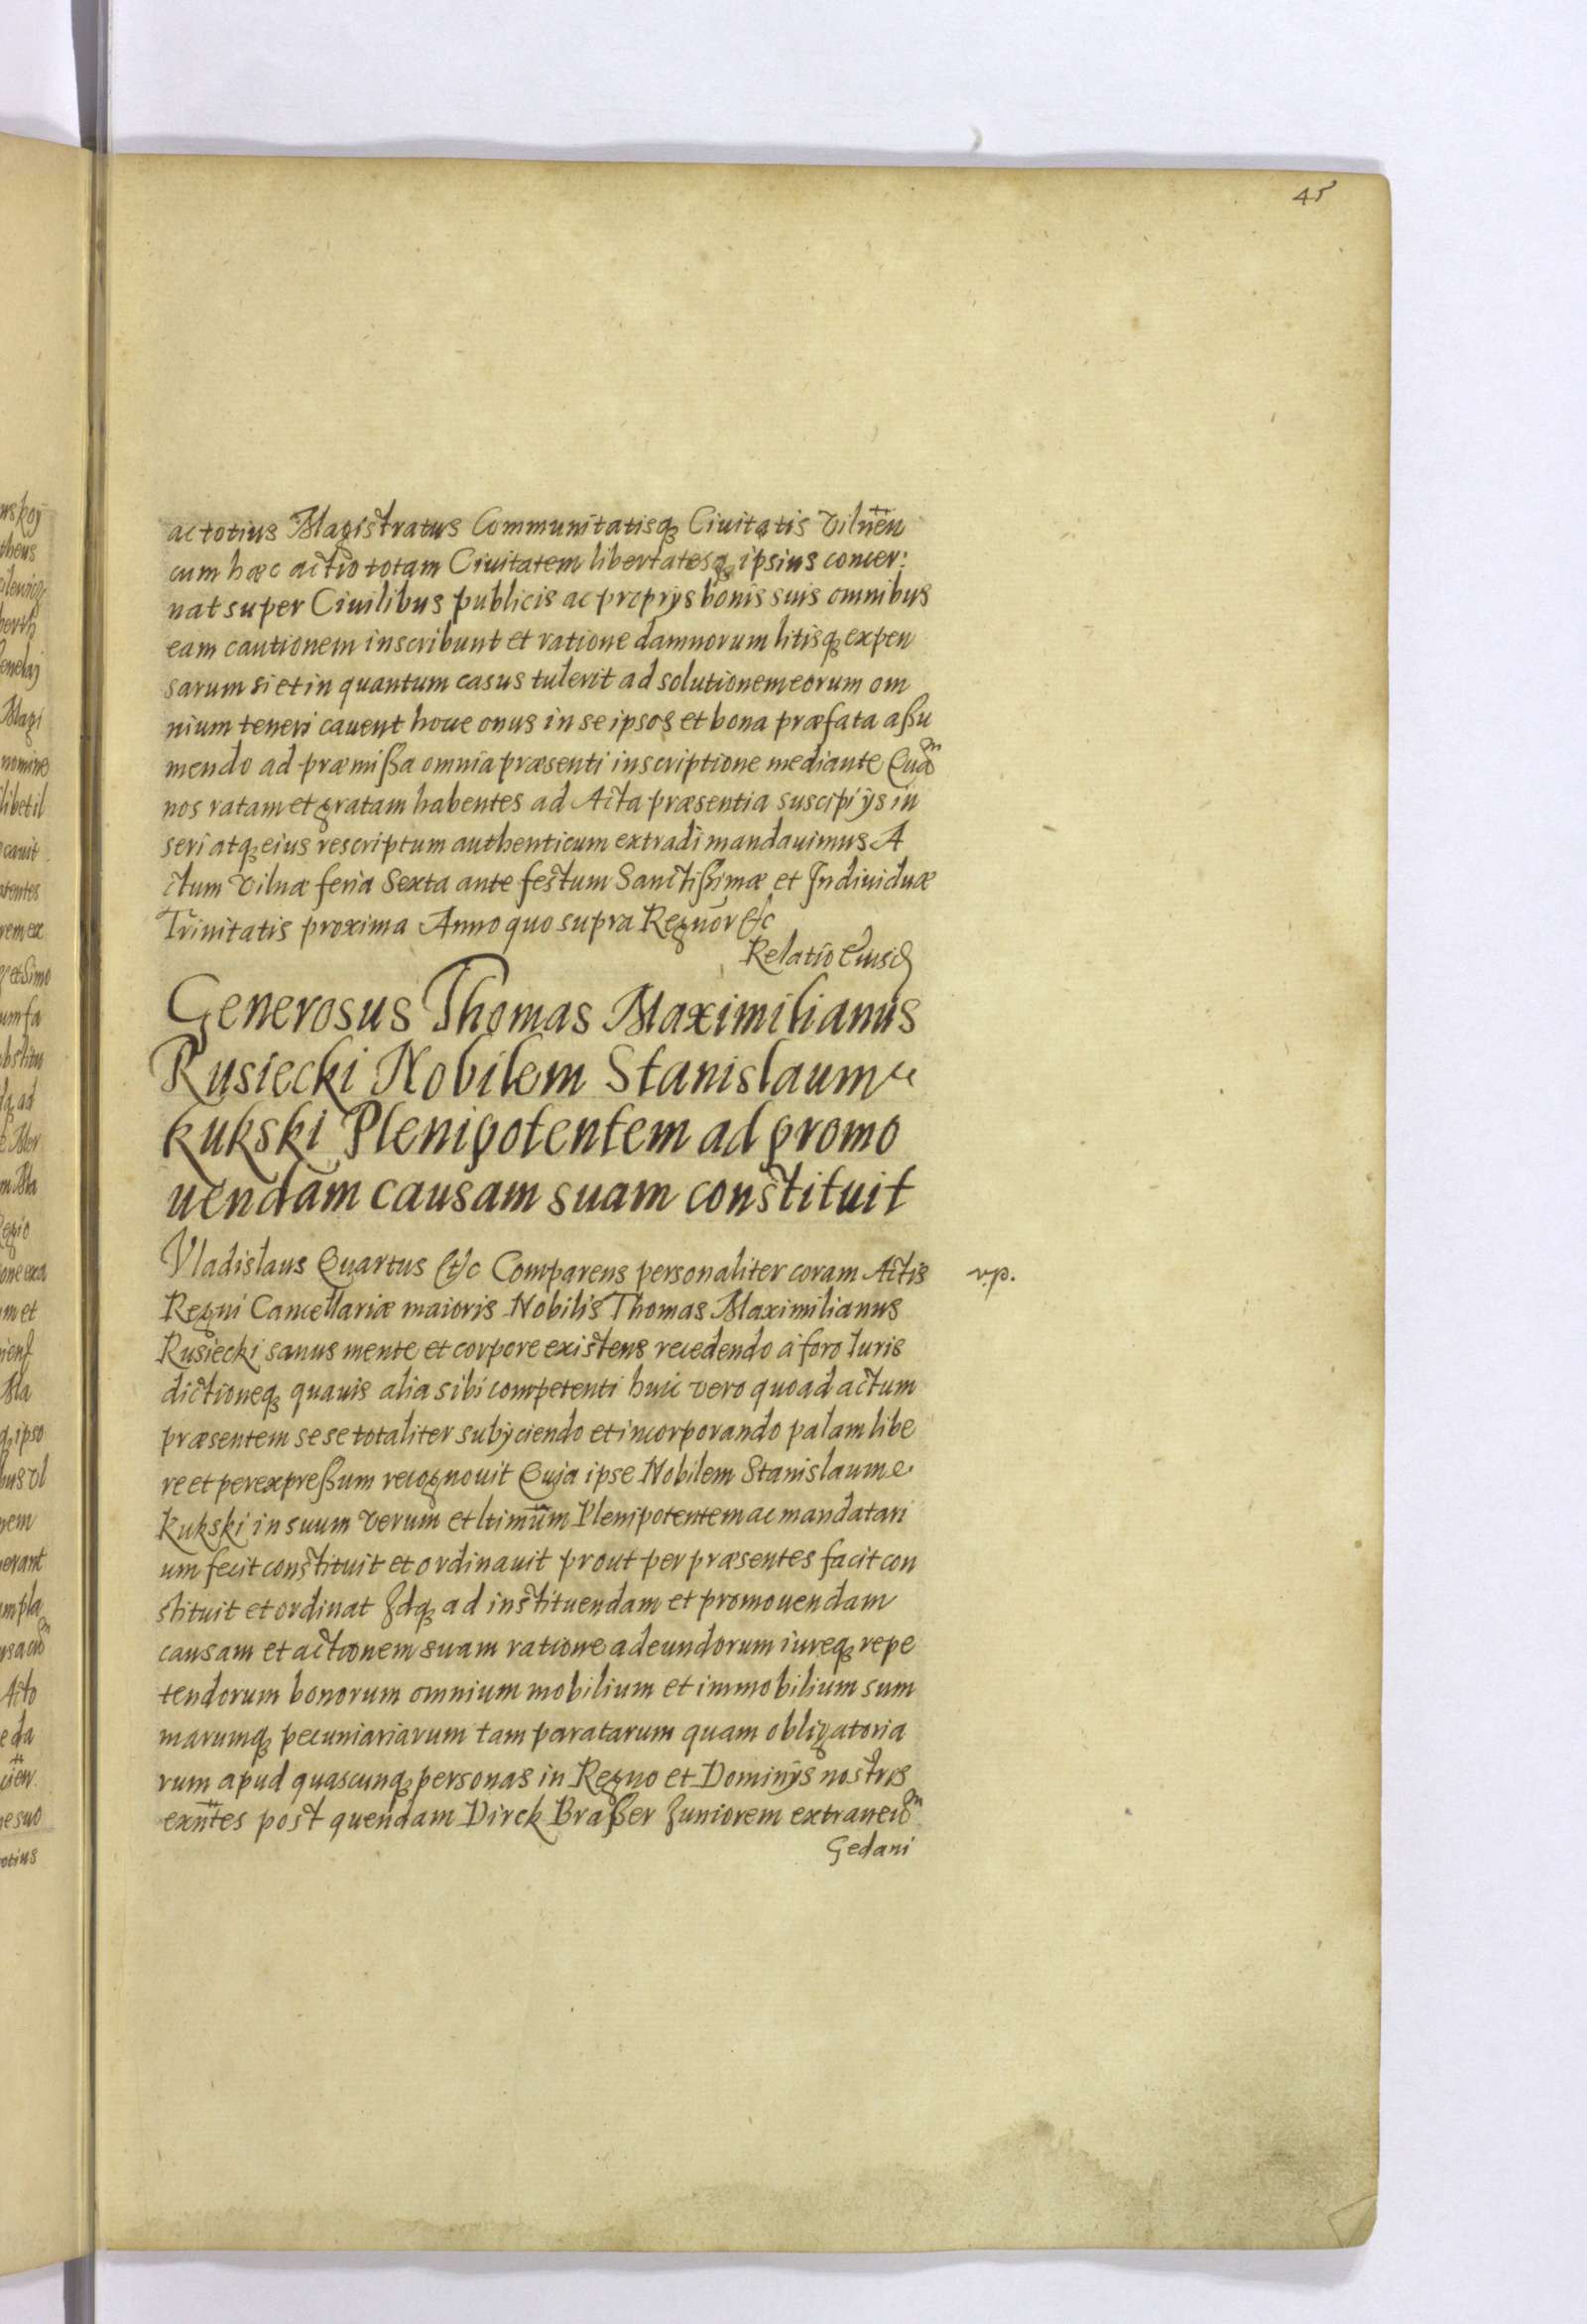 45
ac totius Magistratus Communitatisq Ciuitatis Vilnen
cum hæc actio totam Ciuitatem libertatesq ipsius concer:
nat super Ciuilibus publicis ac proprijs bonis suis omnibus
eam cautionem inscribunt et ratione damnorum litisq expen
sarum si et in quantum casus tulerit ad solutionem eorum om
nium teneri cauent hocce onus in se ipsos et bona præfata aßu
mendo ad præmißa omnia præsenti inscriptione mediante Quā
nos ratam et gratam habentes ad Acta præsentia suscipi ijs in
seri atq eius rescriptum authenticum extradi mandauimus A
ctum Vilnæ feria Sexta ante festum Sanctißimæ et Indiuiduæ
Trinitatis proxima Anno quo supra Regnor etc
Relatio Eiusd
Generosus Thomas Maximilianus
Rusiecki Nobilem Stanislaum
Kukski Plenipotentem ad promo
uendam causam suam constituit
Vladislaus Quartus etc Comparens personaliter coram Actis
v.p.
Regni Cancellariæ maioris Nobilis Thomas Maximilianus
Rusiecki sanus mente et corpore existens recedendo à foro Iuris
dictioneq quauis alia sibi competenti huic vero quoad actum
præsentem sese totaliter subijciendo et incorporando palam libe
re et per expreßum recognouit Quia ipse Nobilem Stanislaum
Kukski in suum verum et ltimūm Plenipotentem ac mandatari
um fecit constituit et ordinauit prout per præsentes facit con
stituit et ordinat Idq ad instituendam et promouendam
causam et actionem suam ratione adeundorum iureq repe
tendorum bonorum omnium mobilium et immobilium sum
marumq pecuniariarum tam paratarum quam obligatoria
rum apud quascunq personas in Regno et Dominijs nostris
exntes post quendam Dirck Braßer Iuniorem extraneū
Gedani